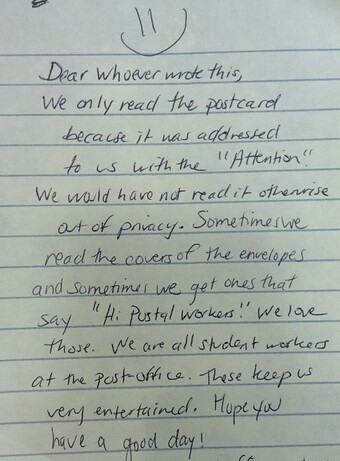 Dear Whoever wrote this,
We only read the postcard
because it was addressed
to us with the "Attention".
We would have not read it otherwise
out of privacy. Sometimes we
read the covers of the envelopes
and sometimes we get ones that
say "Hi Postal Workers!" We love
those. We are all student workers
at the post-office. These keep us
very entertained. Hope you
have a good day!